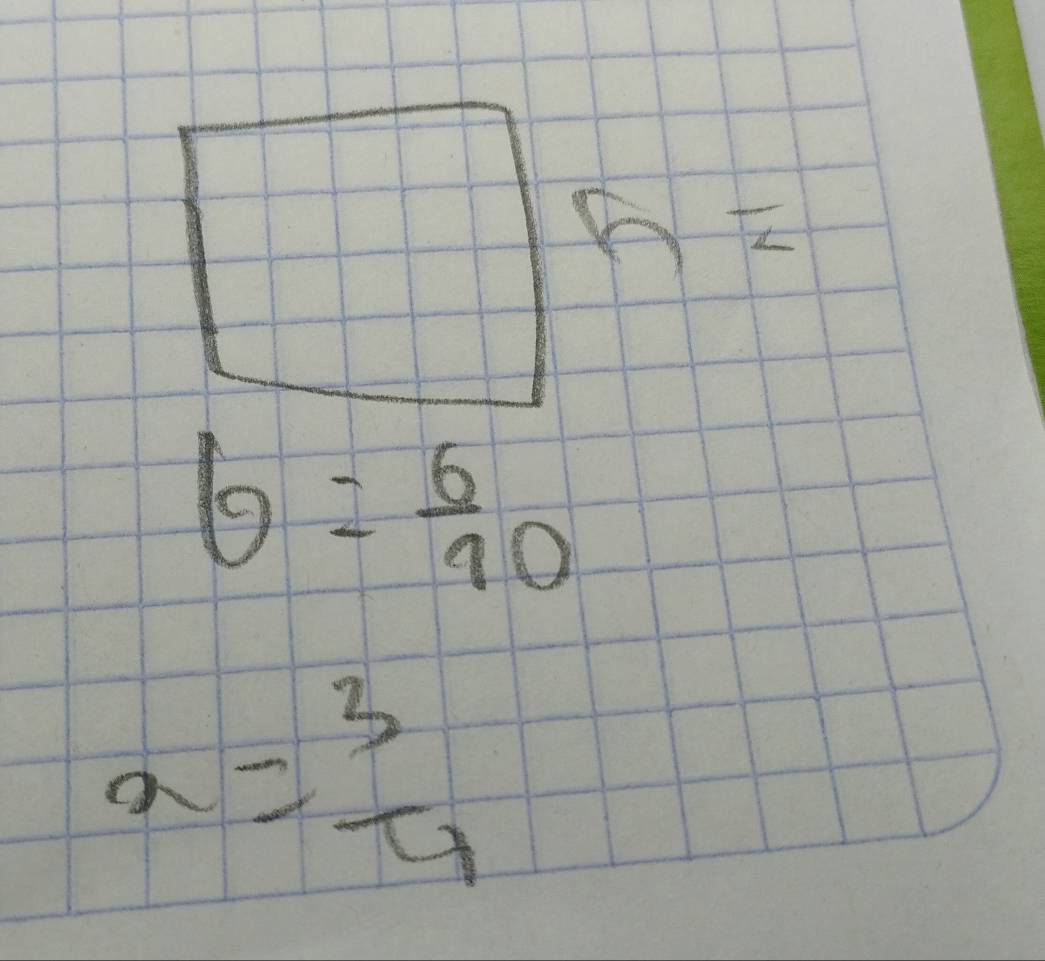 h =
b = 6/10
a = 3/4